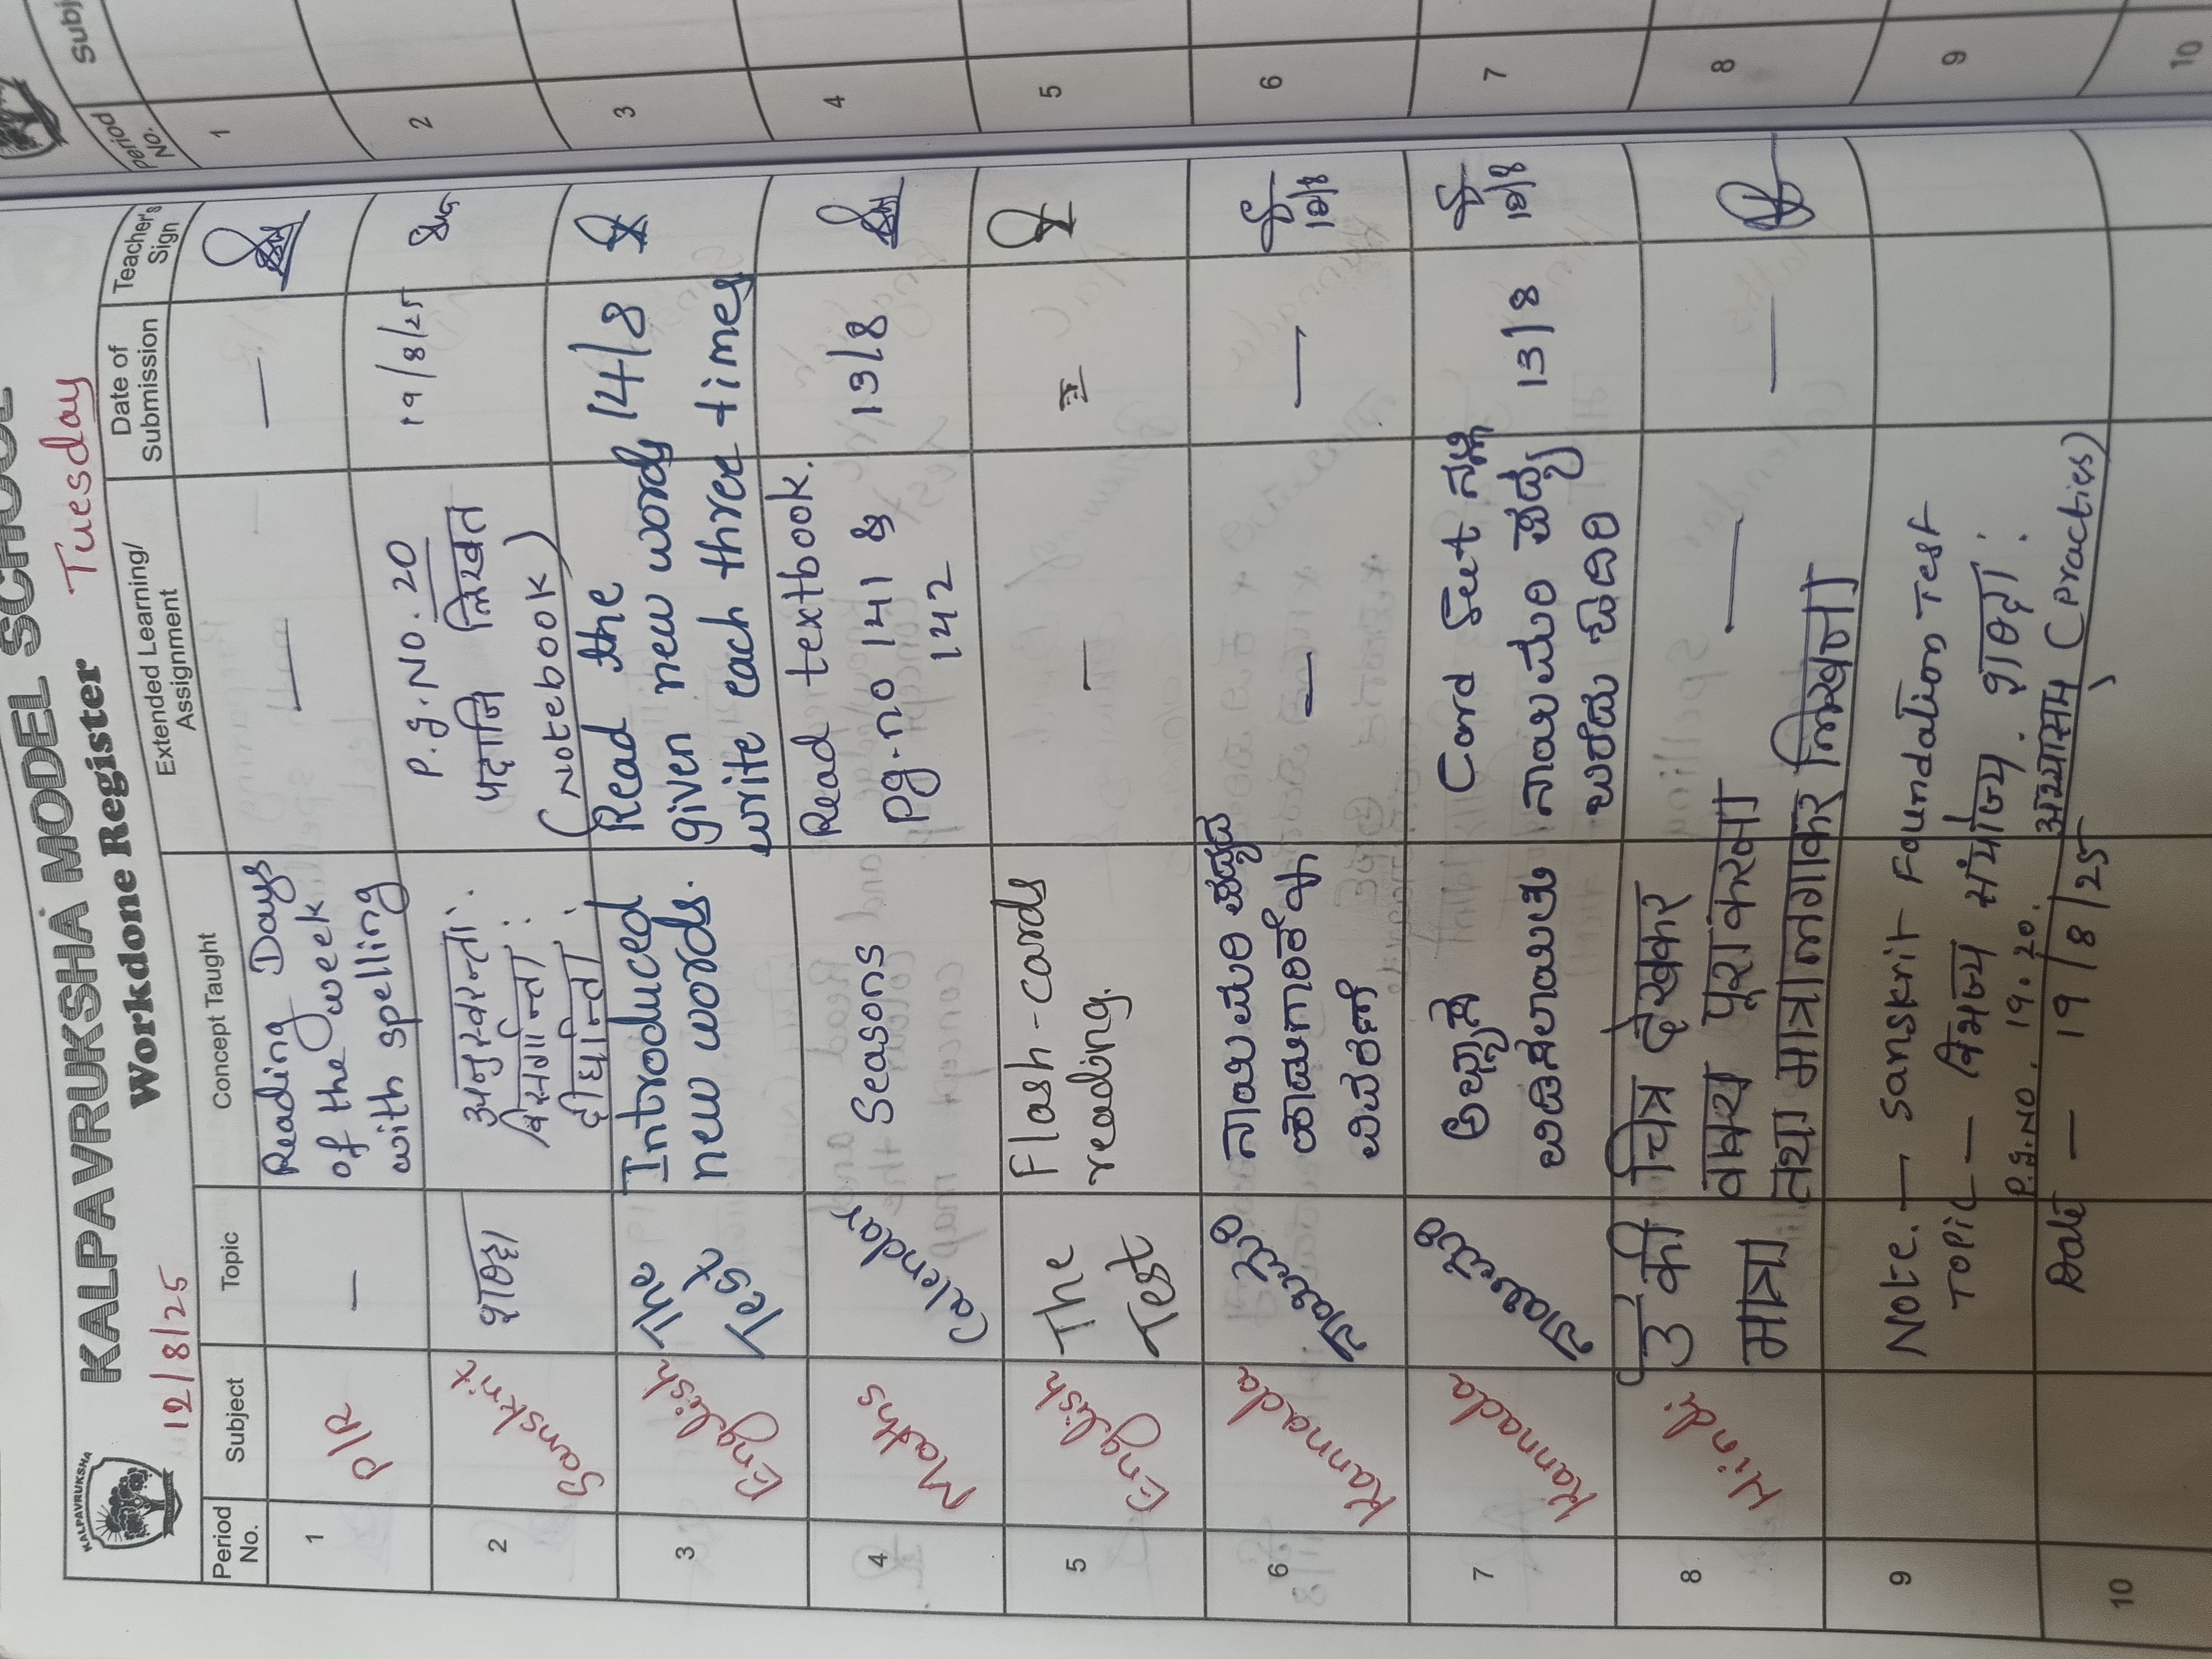 KALPAVRUKSHA
KALPAVRUKSHA MODEL SCHOOL
12/8/25 Workdone Register Tuesday
Period No. Subject Topic Concept Taught Extended Learning/ Assignment Date of Submission Teacher's Sign
1 P/R — Reading Days — —
of the week
with spelling
2 Sanskrit शब्दा अनुस्वरन्ता: P.g.No. 20 19/8/25
विसर्गान्ता: पदानि लिखत
दीर्घान्ता: (Notebook)
3 English The Test Introduced Read the 14/8
new words. given new words
write each three times
4 Maths Calendar Seasons Read textbook. 13/8
pg.no 141 &
142
5 English The Test Flash-cards — =
reading.
6 Kannada ನಾಯಿಮರಿ ನಾಯಿಮರಿ ಪದ್ಯದ — — 12/8
ಹಾಡುಗಾರಿಕೆ &
ವಿವರಣೆ
7 Kannada ನಾಯಿಮರಿ ಅಭ್ಯಾಸ Card Seet ನಲ್ಲಿ 13/8 12/8
ಬಿಡಿಸಲಾಯಿತು ನಾಯಿಮರಿ ಪದ್ಯ
ಬರೆದು
8 Hindi उ की मात्रा चित्र देखकर — —
वाक्य पूरा करना
तथा मात्रा लगाकर लिखना
9 Note. — Sanskrit Foundation Test
Topic — विभज्य संयोज्य. शब्दा:
P.g.No. 19. 20. अभ्यासम् (Practies)
10 Date — 19/8/25
Subj
Period No.
1
2
3
4
5
6
7
8
9
10